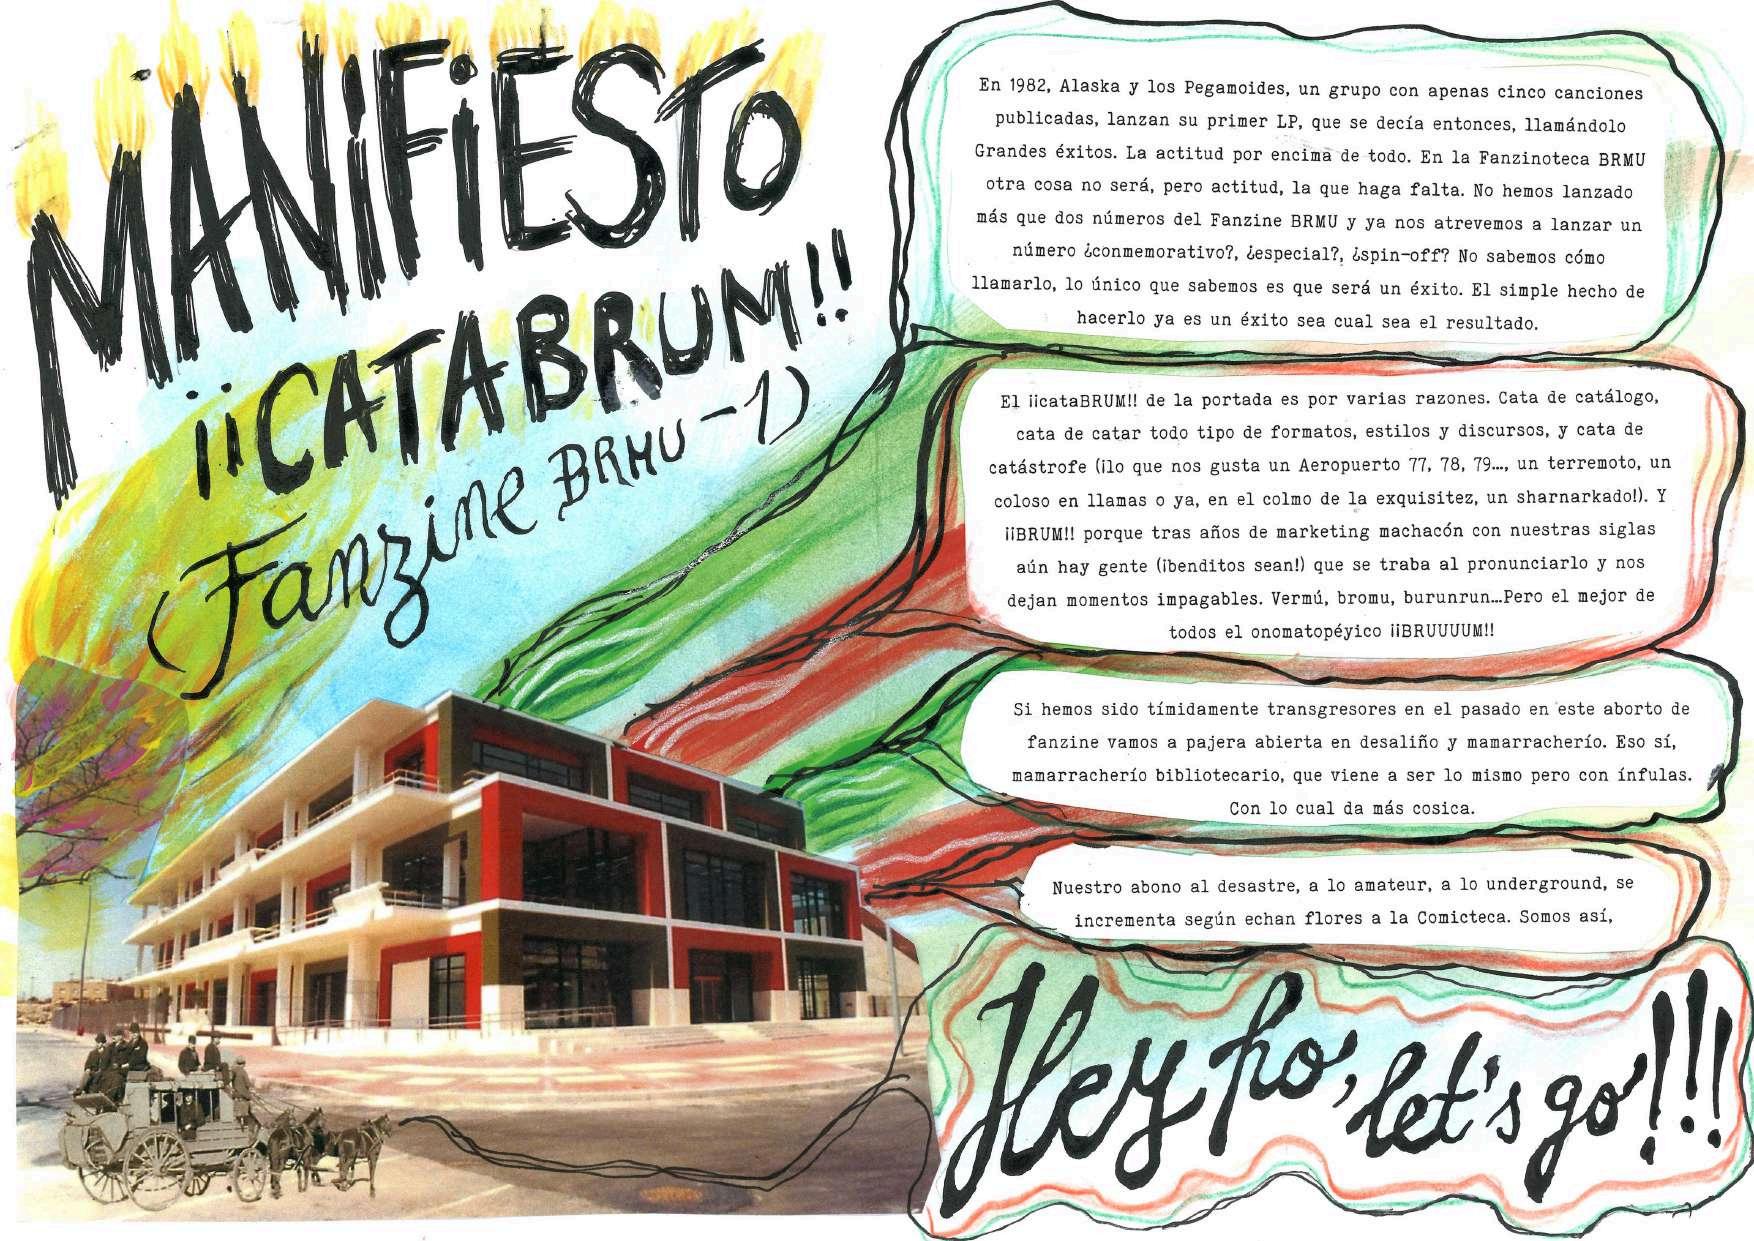 MANIFIESTO
¡¡CATABRUM!!
(Fanzine BRMU-1)
En 1982, Alaska y los Pegamoides, un grupo con apenas cinco canciones
publicadas, lanzan su primer LP, que se decía entonces, llamándolo
Grandes éxitos. La actitud por encima de todo. En la Fanzinoteca BRMU
otra cosa no será, pero actitud, la que haga falta. No hemos lanzado
más que dos números del Fanzine BRMU y ya nos atrevemos a lanzar un
número ¿conmemorativo?, ¿especial?, ¿spin-off? No sabemos cómo
llamarlo, lo único que sabemos es que será un éxito. El simple hecho de
hacerlo ya es un éxito sea cual sea el resultado.
El ¡¡cataBRUM!! de la portada es por varias razones. Cata de catálogo,
cata de catar todo tipo de formatos, estilos y discursos, y cata de
catástrofe (¡lo que nos gusta un Aeropuerto 77, 78, 79…, un terremoto, un
coloso en llamas o ya, en el colmo de la exquisitez, un sharnarkado!). Y
¡¡BRUM!! porque tras años de marketing machacón con nuestras siglas
aún hay gente (¡benditos sean!) que se traba al pronunciarlo y nos
dejan momentos impagables. Vermú, bromu, burunrun…Pero el mejor de
todos el onomatopéyico ¡¡BRUUUUM!!
Si hemos sido tímidamente transgresores en el pasado en este aborto de
fanzine vamos a pajera abierta en desaliño y mamarracherío. Eso sí,
mamarracherío bibliotecario, que viene a ser lo mismo pero con ínfulas.
Con lo cual da más cosica.
Nuestro abono al desastre, a lo amateur, a lo underground, se
incrementa según echan flores a la Comicteca. Somos así,
Hey ho, let's go!!!